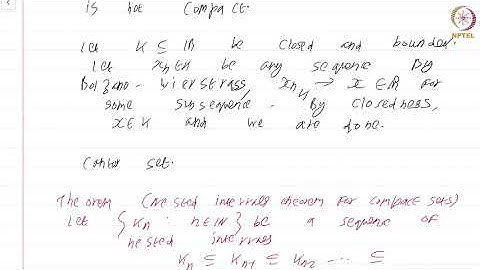 is not compact.
NPTEL
Let K ⊆ ℝ be closed and bounded.
Let xₙ ∈ K be any sequence By
Bolzano - Wierstrass, xₙₖ → x ∈ ℝ for
some subsequence. By closedness,
x ∈ K and we are done.
Cantor set.
Theorem (Nested intervals theorem for compact sets)
Let {Kₙ : n ∈ ℕ} be a sequence of
nested intervals
Kₙ ⊆ Kₙ₋₁ ⊆ Kₙ₋₂ ... ⊆